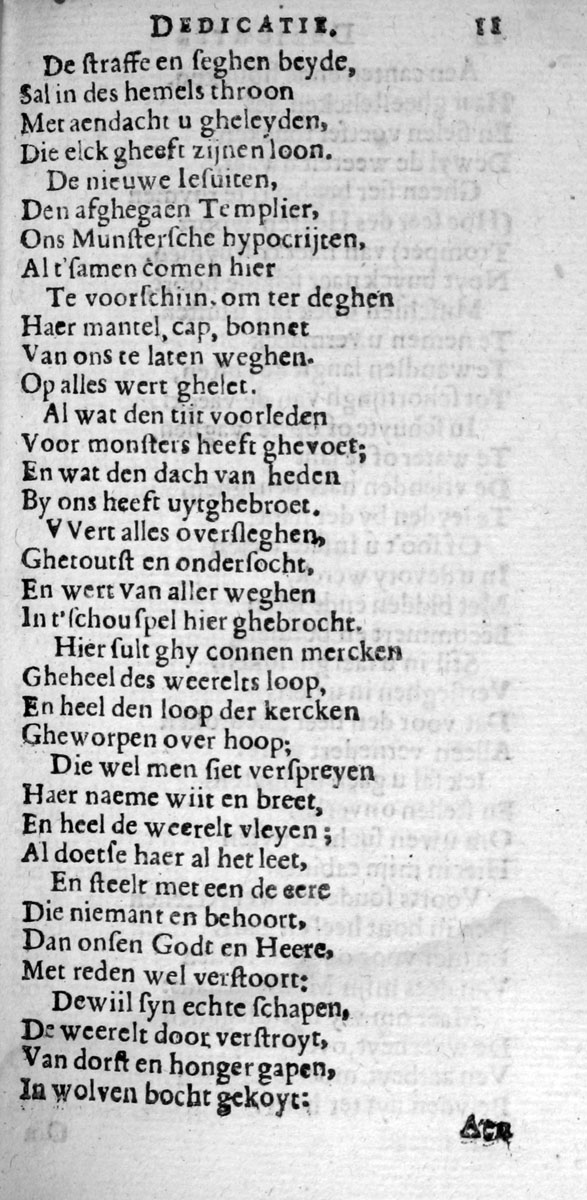 DEDICATIE. 11
De straffe en seghen beyde,
Sal in des hemels throon
Met aendacht u gheleyden,
Die elck gheeft zijnen loon.
De nieuwe Iesuiten,
Den afghegaen Templier,
Ons Munstersche hypocrijten,
Al t'samen comen hier
Te voorschiin, om ter deghen
Haer mantel, cap, bonnet
Van ons te laten weghen.
Op alles wert ghelet.
Al wat den tiit voorleden
Voor monsters heeft ghevoet;
En wat den dach van heden
By ons heeft uytghebroet.
VVert alles oversleghen,
Ghetoutst en ondersocht,
En wert van aller weghen
In t'schouspel hier ghebrocht.
Hier sult ghy connen mercken
Gheheel des weerelts loop,
En heel den loop der kercken
Gheworpen over hoop;
Die wel men siet verspreyen
Haer naeme wiit en breet,
En heel de weerelt vleyen;
Al doetse haer al het leet,
En steelt met een de eere
Die niemant en behoort,
Dan onsen Godt en Heere,
Met reden wel verstoort:
Dewiil syn echte schapen,
De weerelt door, verstroyt,
Van dorst en honger gapen,
In wolven bocht gekoyt: